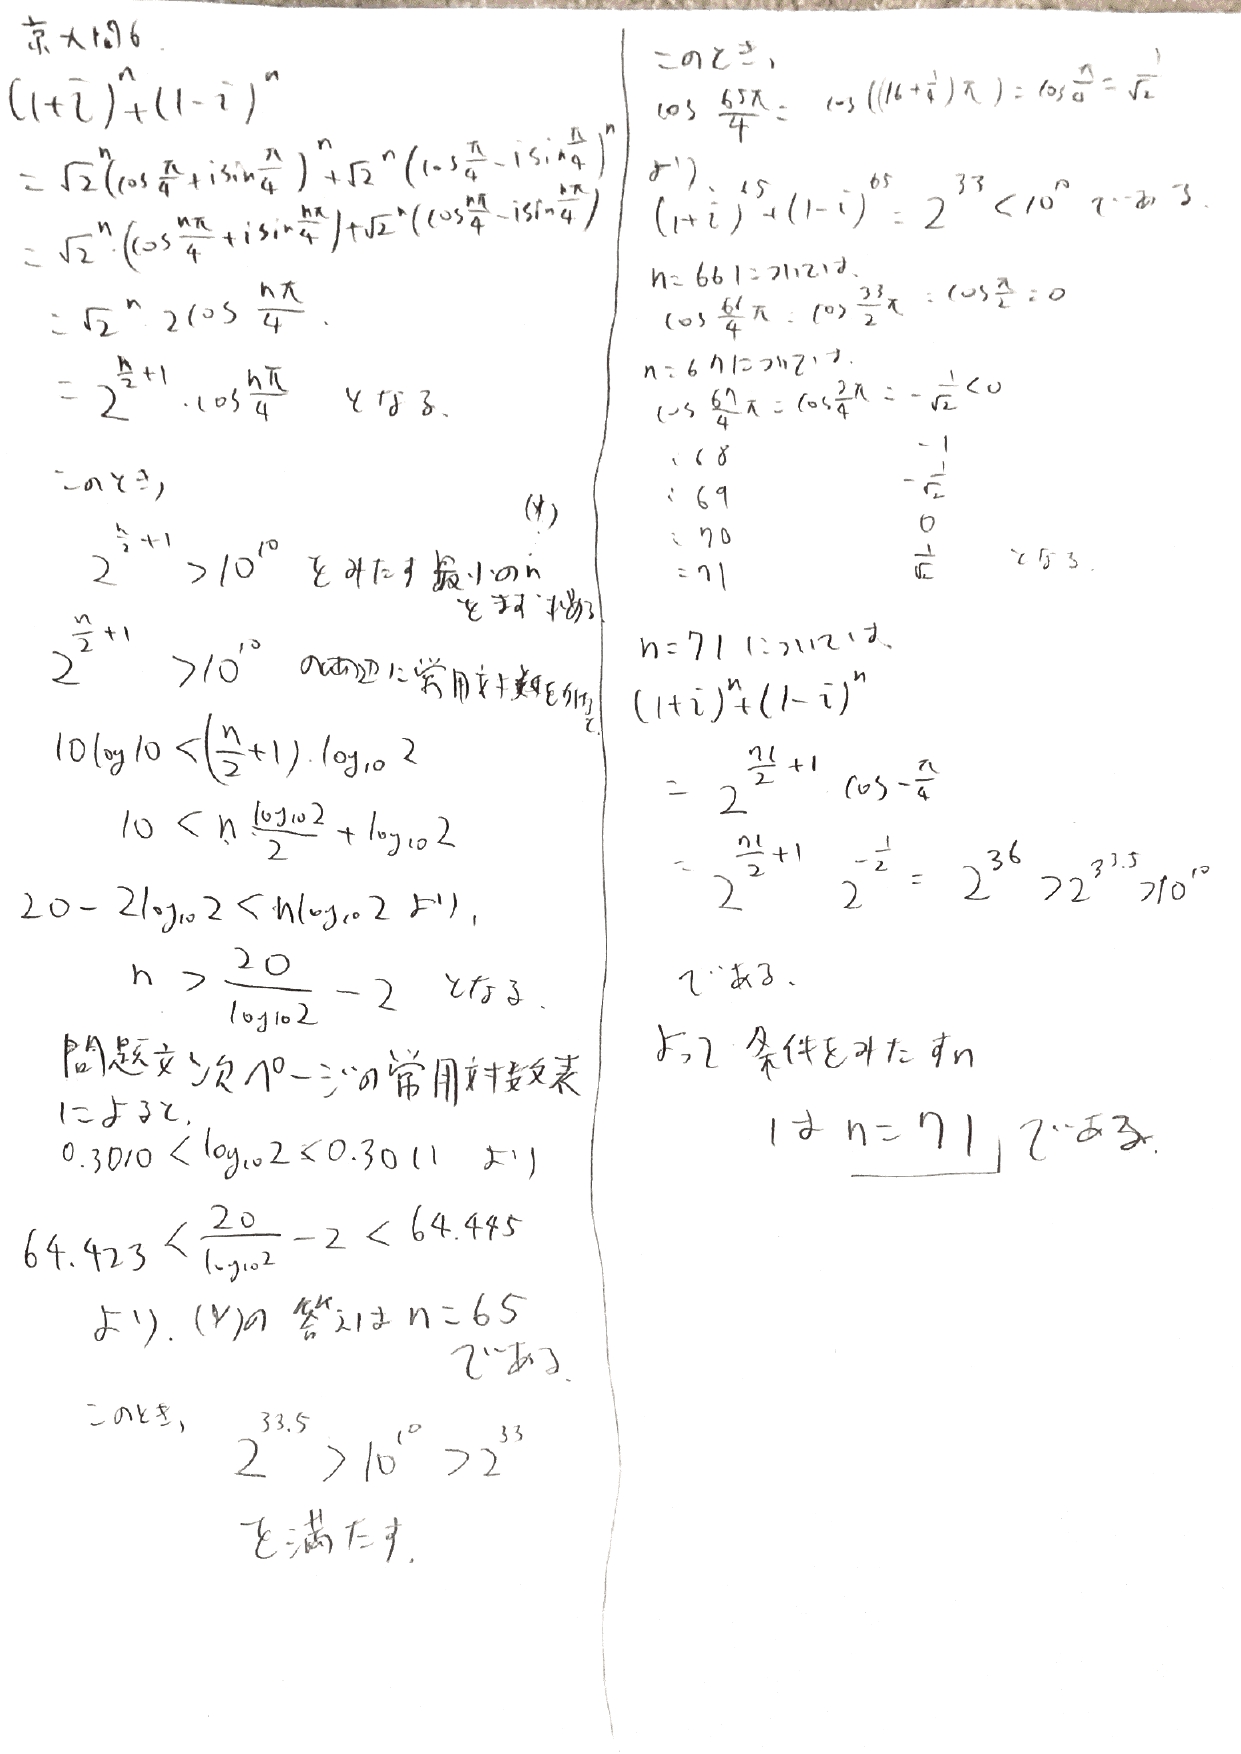 京大 大問6
(1+i)^n+(1-i)^n
=√2^n(cos π/4+isin π/4)^n+√2^n(cos π/4-isin π/4)^n
=√2^n・(cos nπ/4+isin nπ/4)+√2^n(cos nπ/4-isin nπ/4)
=√2^n 2cos nπ/4.
=2^(n/2+1)・cos nπ/4 となる.
このとき,
(*)
2^(n/2+1) >10^10 をみたす最小のn
をまず求める
2^(n/2+1) >10^10 の両辺に常用対数をかけると
10log10<(n/2+1)・log10 2
10<n log10 2/2+log10 2
20-2log10 2<nlog10 2 より,
n > 20/log10 2 -2 となる.
問題文次ページの常用対数表
によると,
0.3010<log10 2<0.3011 より
64.423<20/log10 2 -2<64.445
より,(*)の答えは n=65
である.
このとき, 2^33.5 >10^10 >2^33
を満たす.
このとき,
cos 65π/4= cos((16+1/4)π)=cos π/4=1/√2
より,
(1+i)^65+(1-i)^65=2^33<10^10 である.
n=66については,
cos 66/4 π=cos 33/2 π=cos π/2=0
n=67については,
cos 67/4 π=cos 3/4 π=-1/√2<0
:68 -1
:69 -1/√2
:70 0
=71 1/√2 となる.
n=71については,
(1+i)^n+(1-i)^n
=2^(71/2+1) cos-π/4
=2^(71/2+1) 2^(-1/2)=2^36>2^33.5>10^10
である.
よって条件をみたすn
は n=71 である.